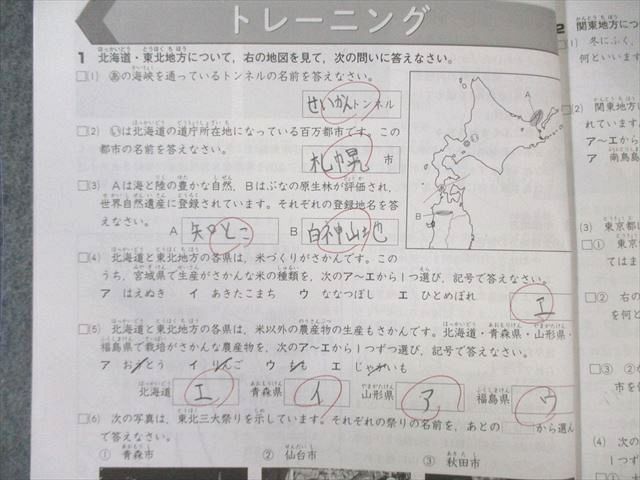 トレーニング
1 北海道・東北地方について，右の地図を見て，次の問いに答えなさい。
□(1) あの海峡を通っているトンネルの名前を答えなさい。
せいかんトンネル
□(2) いは北海道の道庁所在地になっている百万都市です。この
都市の名前を答えなさい。
札幌 市
□(3) Aは海と陸の豊かな自然，Bはぶなの原生林が評価され，
世界自然遺産に登録されています。それぞれの登録地名を答
えなさい。
A 知とこ B 白神山地
□(4) 北海道と東北地方の各県は，米づくりがさかんです。この
うち，宮城県で生産がさかんな米の種類を，次のア〜エから1つ選び，記号で答えなさい。
ア はえぬき イ あきたこまち ウ ななつぼし エ ひとめぼれ
エ
□(5) 北海道と東北地方の各県は，米以外の農産物の生産もさかんです。北海道・青森県・山形県・
福島県で栽培がさかんな農産物を，次のア〜エから1つずつ選び，記号で答えなさい。
ア おうとう イ りんご ウ もも エ じゃがいも
北海道 エ 青森県 イ 山形県 ア 福島県 ウ
□(6) 次の写真は，東北三大祭りを示しています。それぞれの祭りの名前を，あとの から選ん
で答えなさい。
① 青森市 ② 仙台市 ③ 秋田市
A
B
2 関東地方に
□(1) 冬にふく，
何といいます
□(2) 関東地方
れています。
ア〜エから
ア
南鳥島
(3) 東京都に
□① 東京
てはま
□② 右の
を何と
□③ ②か
市を
(4) 次の
1つ